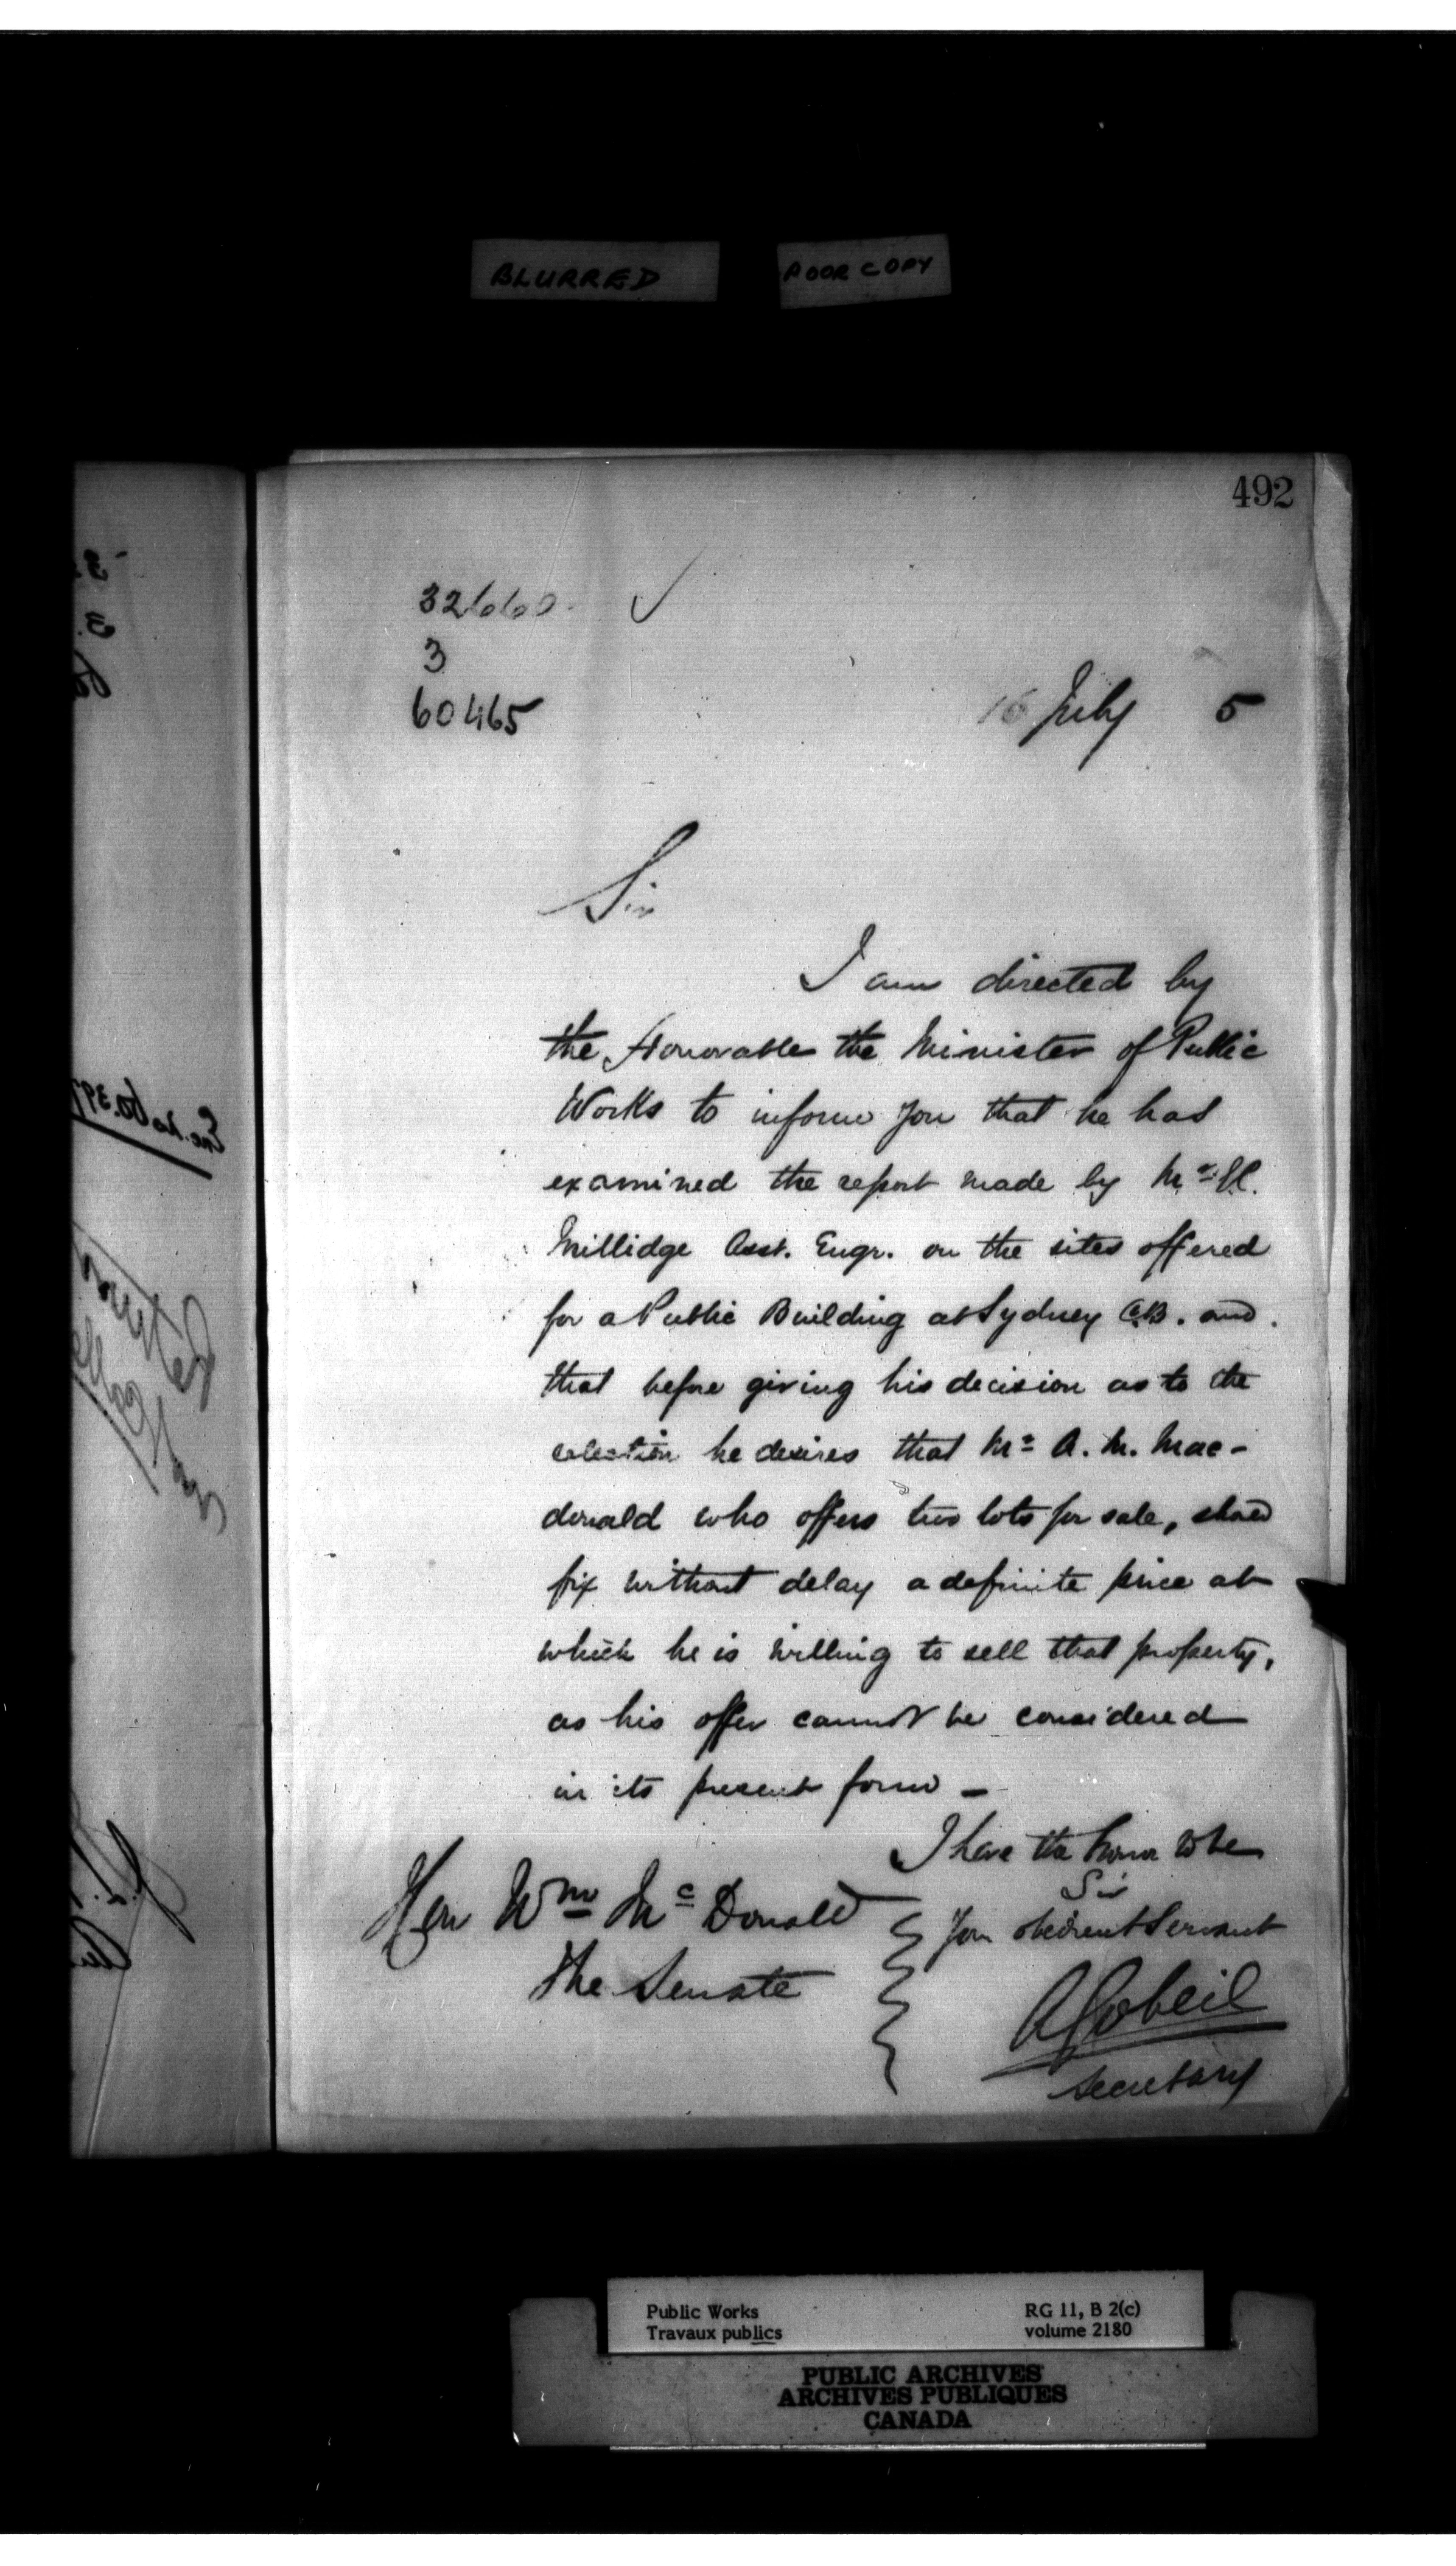 BLURRED POOR COPY
492
32660.
3
60465
16 July 5
Sir
I am directed by
the Honorable the Minister of Public
Works to inform you that he has
examined the report made by Mr
Millidge Asst. Engr. on the sites offered
for a Public Building at Sydney C.B. and
that before giving his decision as to the
selection he desires that Mr A. M. Mac-
donald who offers two lots for sale, should
fix without delay a definite price at
which he is willing to sell that property,
as his offer cannot be considered
in its present form -
I have the honor to be
Sir
Your obedient Servant
Hon Wm McDonald
The Senate
AGobeil
Secretary
Public Works
Travaux publics
RG 11, B 2(c)
volume 2180
PUBLIC ARCHIVES
ARCHIVES PUBLIQUES
CANADA